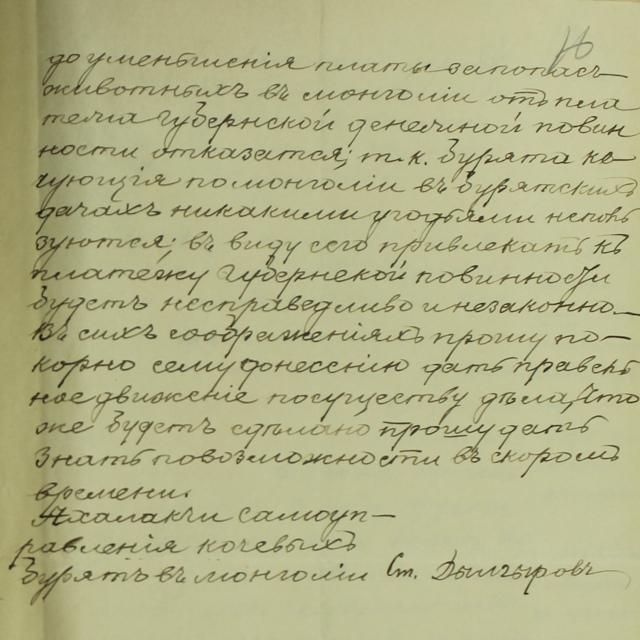 до уменьшенія платы за попас
животныхъ въ монголіи отъ пла
тежа Губернской денежной повин
ности отказатся; т. к. бурята ко
чующія по монголіи въ бурятскихъ
дачахъ никакими угодьями неполь
зуются; въ виду сего привлекать къ
платежу Губернской повинности
будетъ несправедливо и незаконно. —
Въ сихъ соображеніяхъ прошу по-
корно сему донесенію дать правель
ное движеніе посуществу дѣла, Что
же будетъ сдѣлано прошу дать
Знать повозможности въ скоромъ
времени.
Ахалакчи Самоуп-
равленія кочевыхъ
бурятъ въ монголіи Ст. Дылчыровъ